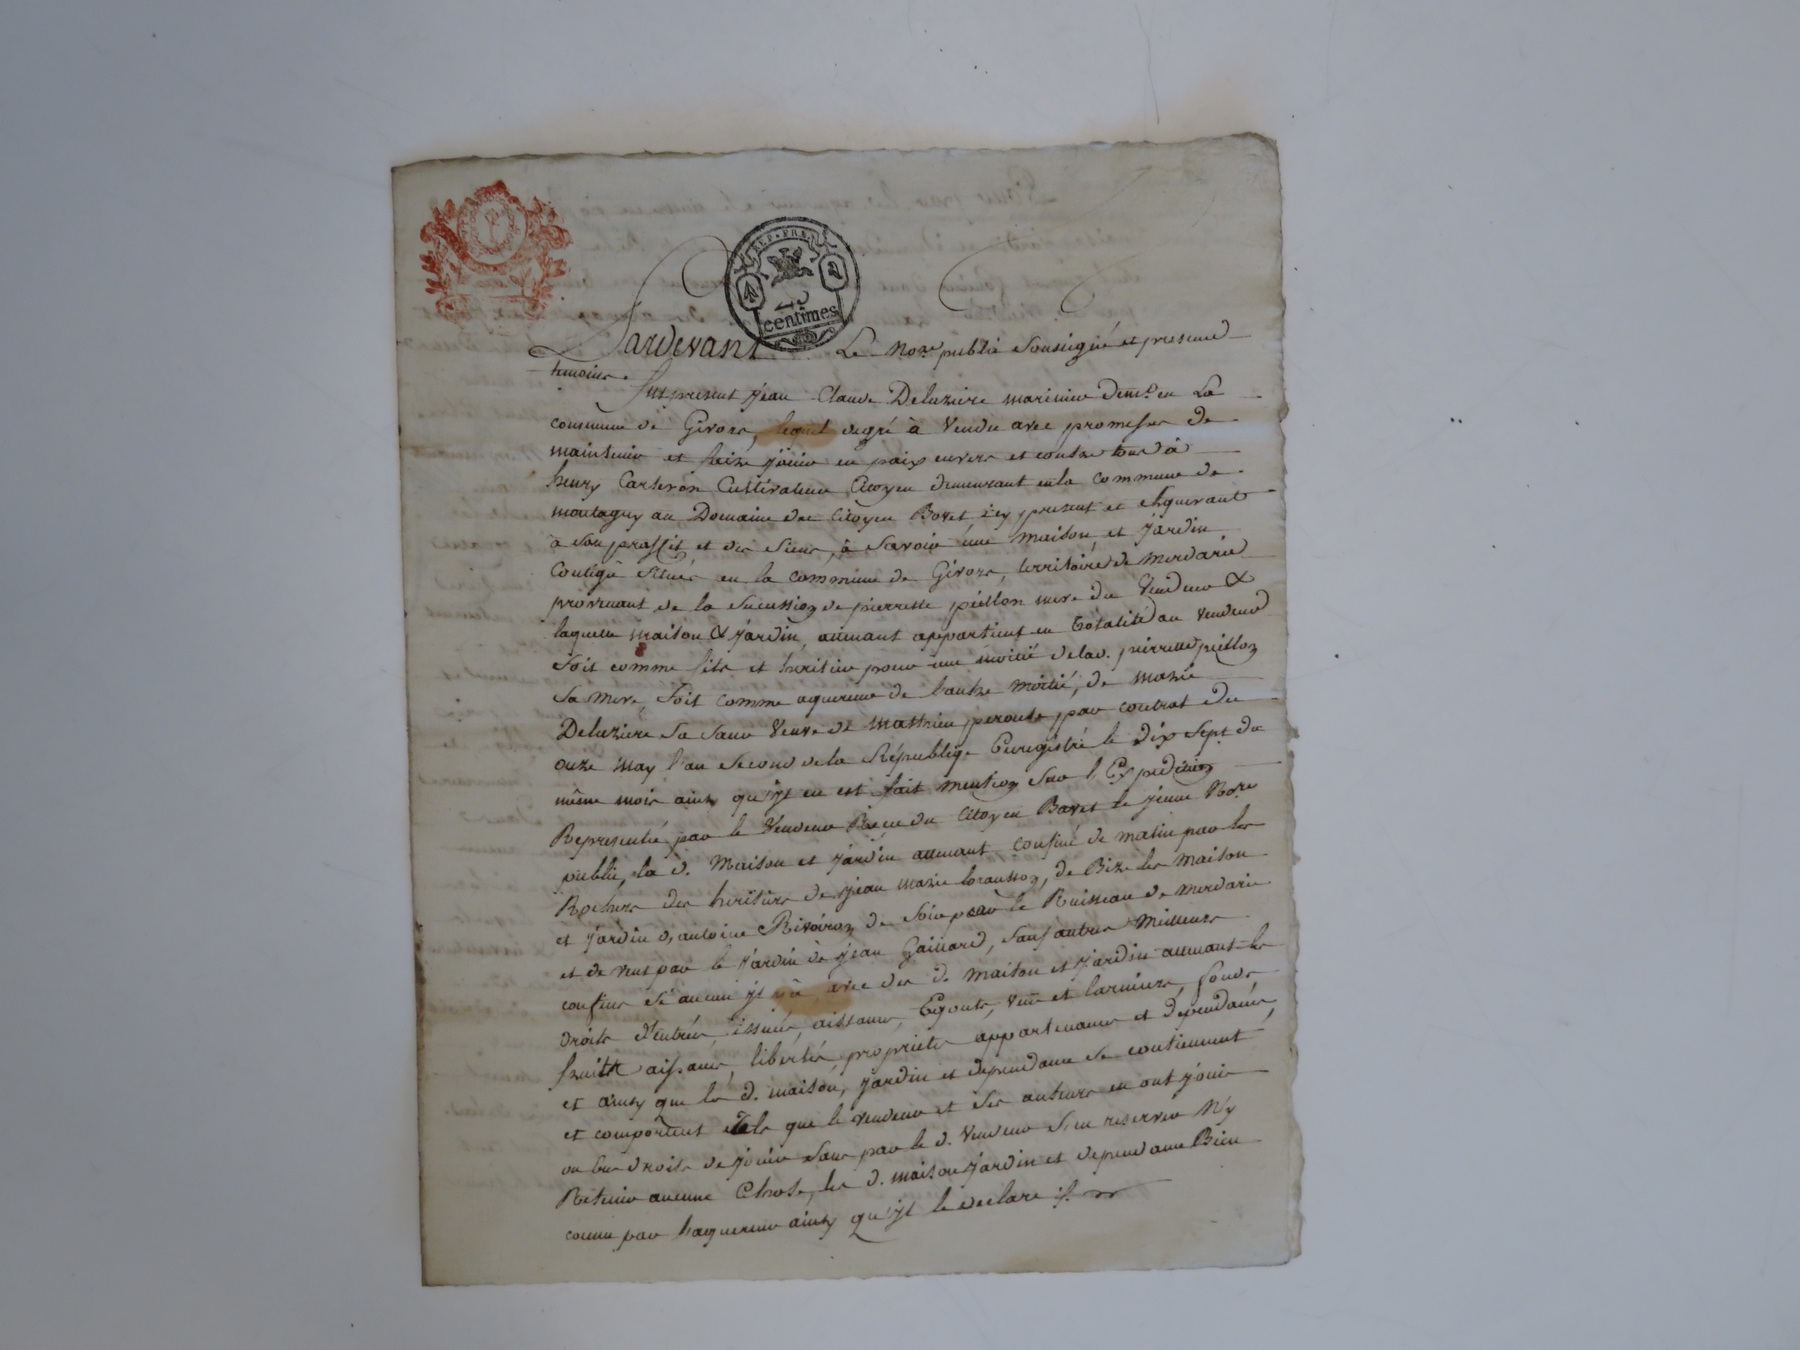 REP. FRA.
25
centimes
Pardevant Le Nore. public Soussigné et presence
temoins.
fut present jean Claude Deluziere marinier demt. en La
commune de Givors, lequel degré à Vendu avec promesses de
maintenir et faire jouir en paix envers et contre tous à
henry Carteron Cultivateur Citoyen demeurant en la commune de
montagny au Domaine du Citoyen Boyet icy present et aquerant
a son proffit et des siens, à savoir une maison et jardin
Contigû situés en la commune de Givors, territoire de merdarie
provenant de la succession de pierrette peillon mere du Vendeur &
laquelle maison & jardin, attenant appartient en totalité au vendeur
soit comme fils et heritier pour une moitié de lad. pierrette peillon
sa mere, soit comme aquereur de l'autre moitié, de marie
Deluziere sa sœur Veuve de mathieu peronte par contrat du
onze may l'an second de la République Enregistré le dix sept du
même mois ainsy qu'il en est fait mention sur l'Expedition
Representée par le Vendeur Reçu du Citoyen Bayet le jeune Nore
public, la d. Maison et jardin attenant confiné de matin par les
Rochers des heritiers de jean marie brausson, de Bize les maison
et jardin d'antoine Rivoiron de soir par le Ruisseau de merdarie
et de vent par le jardin de jean Gaillard, sauf autres meilleurs
confins si aucun y a, avec des d. maison et jardin attenant les
droits d'entrées, issues, aissances, Egouts, vue et larmiers, fonds
fruits aisances, libertés proprietés appartenances et dependances,
et ainsy que les d. maison, jardin et dependance se contiennent
et comportent tels que le vendeur et ses auteurs en ont joui
ou bus droits de jouir sans par le d. Vendeur s'en reserver N'y
Retenir aucune Chose, les d. maison jardin et dependance Bien
connu par l'aquereur ainsy qu'il le declare